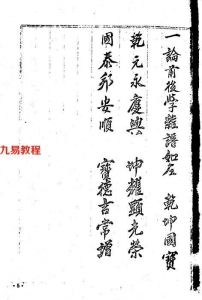 一論前後學雜譜如左　乾坤國寶
乾元永慶興　坤耀顯光榮
國泰邦安順　寶德吉常譜
九易教程
- 6 -